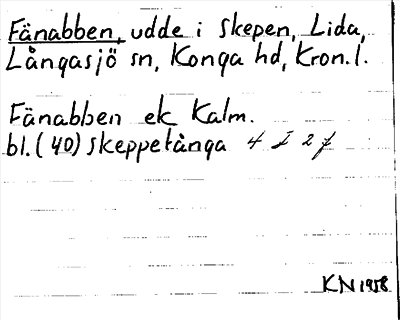 Fänabben, udde i Skepen, Lida,
Långasjö sn, Konga hd, Kron. l.
Fänabben ek Kalm.
bl. (40) Skeppetånga 4 I 2 f
KN 1958